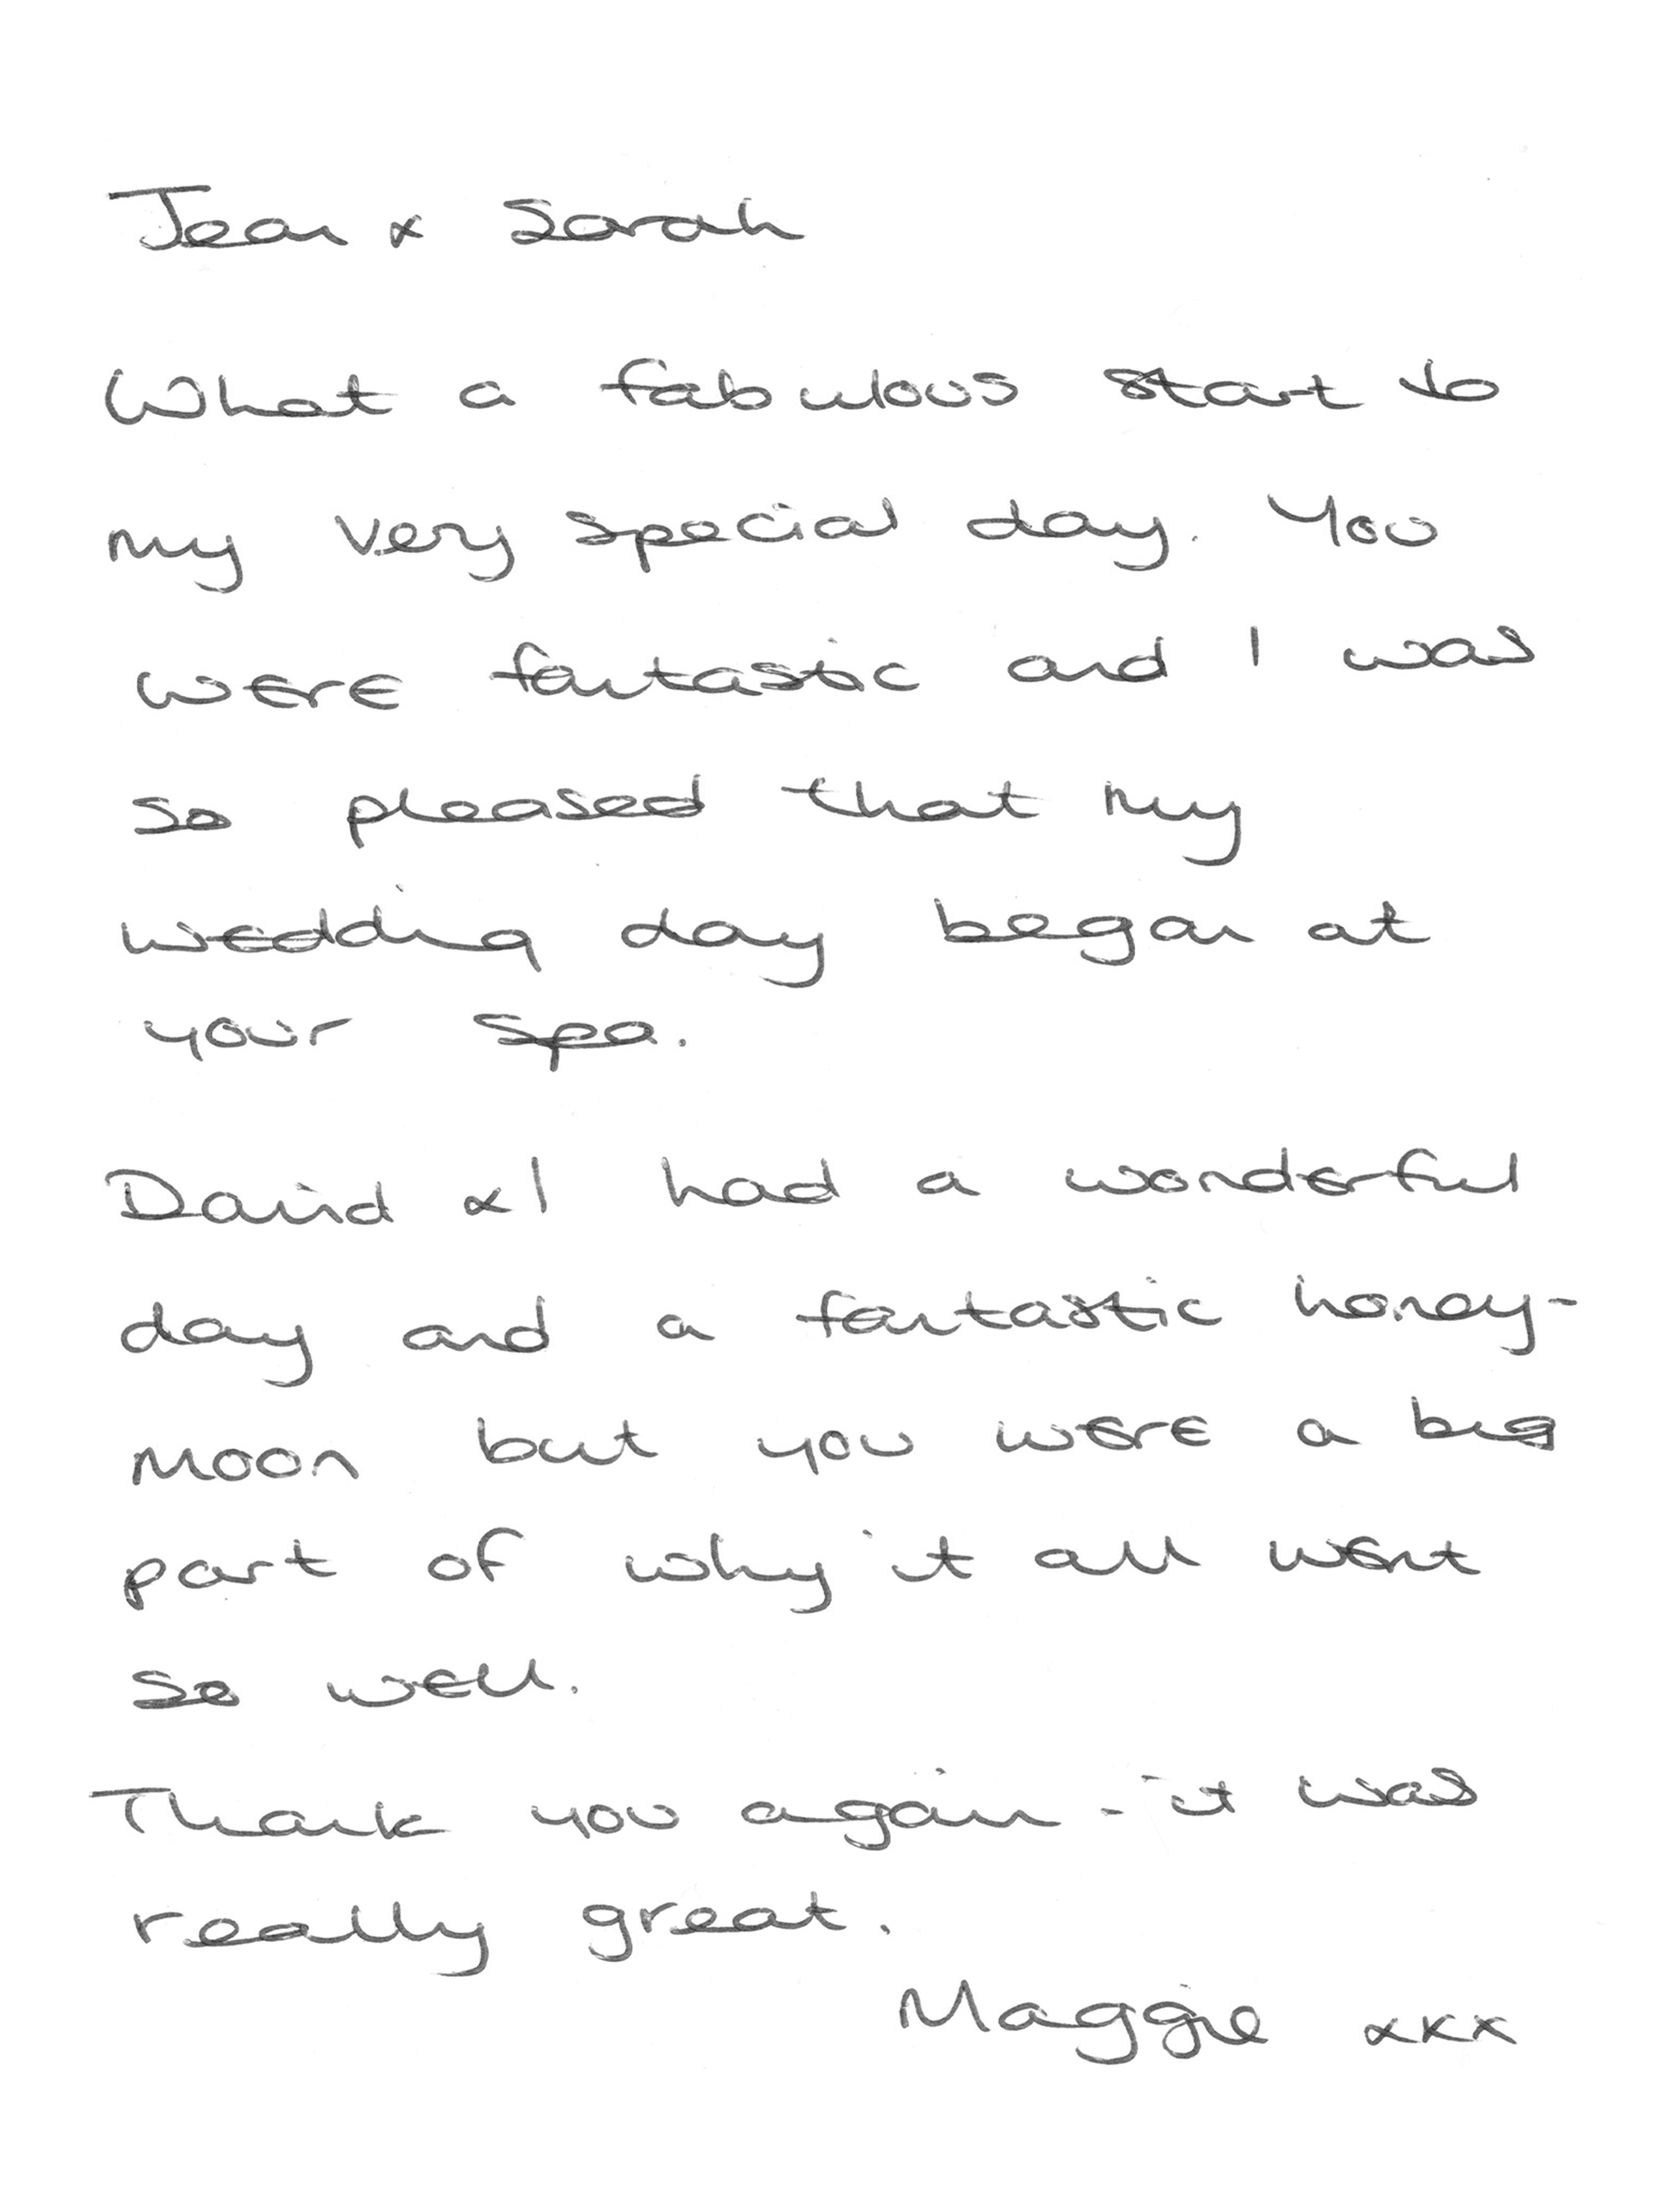 Jean & Sarah
What a fabulous start to
my very special day. You
were fantastic and I was
so pleased that my
wedding day began at
your spa.
David & I had a wonderful
day and a fantastic honey-
moon but you were a big
part of why it all went
so well.
Thank you again - it was
really great.
Maggie xxx